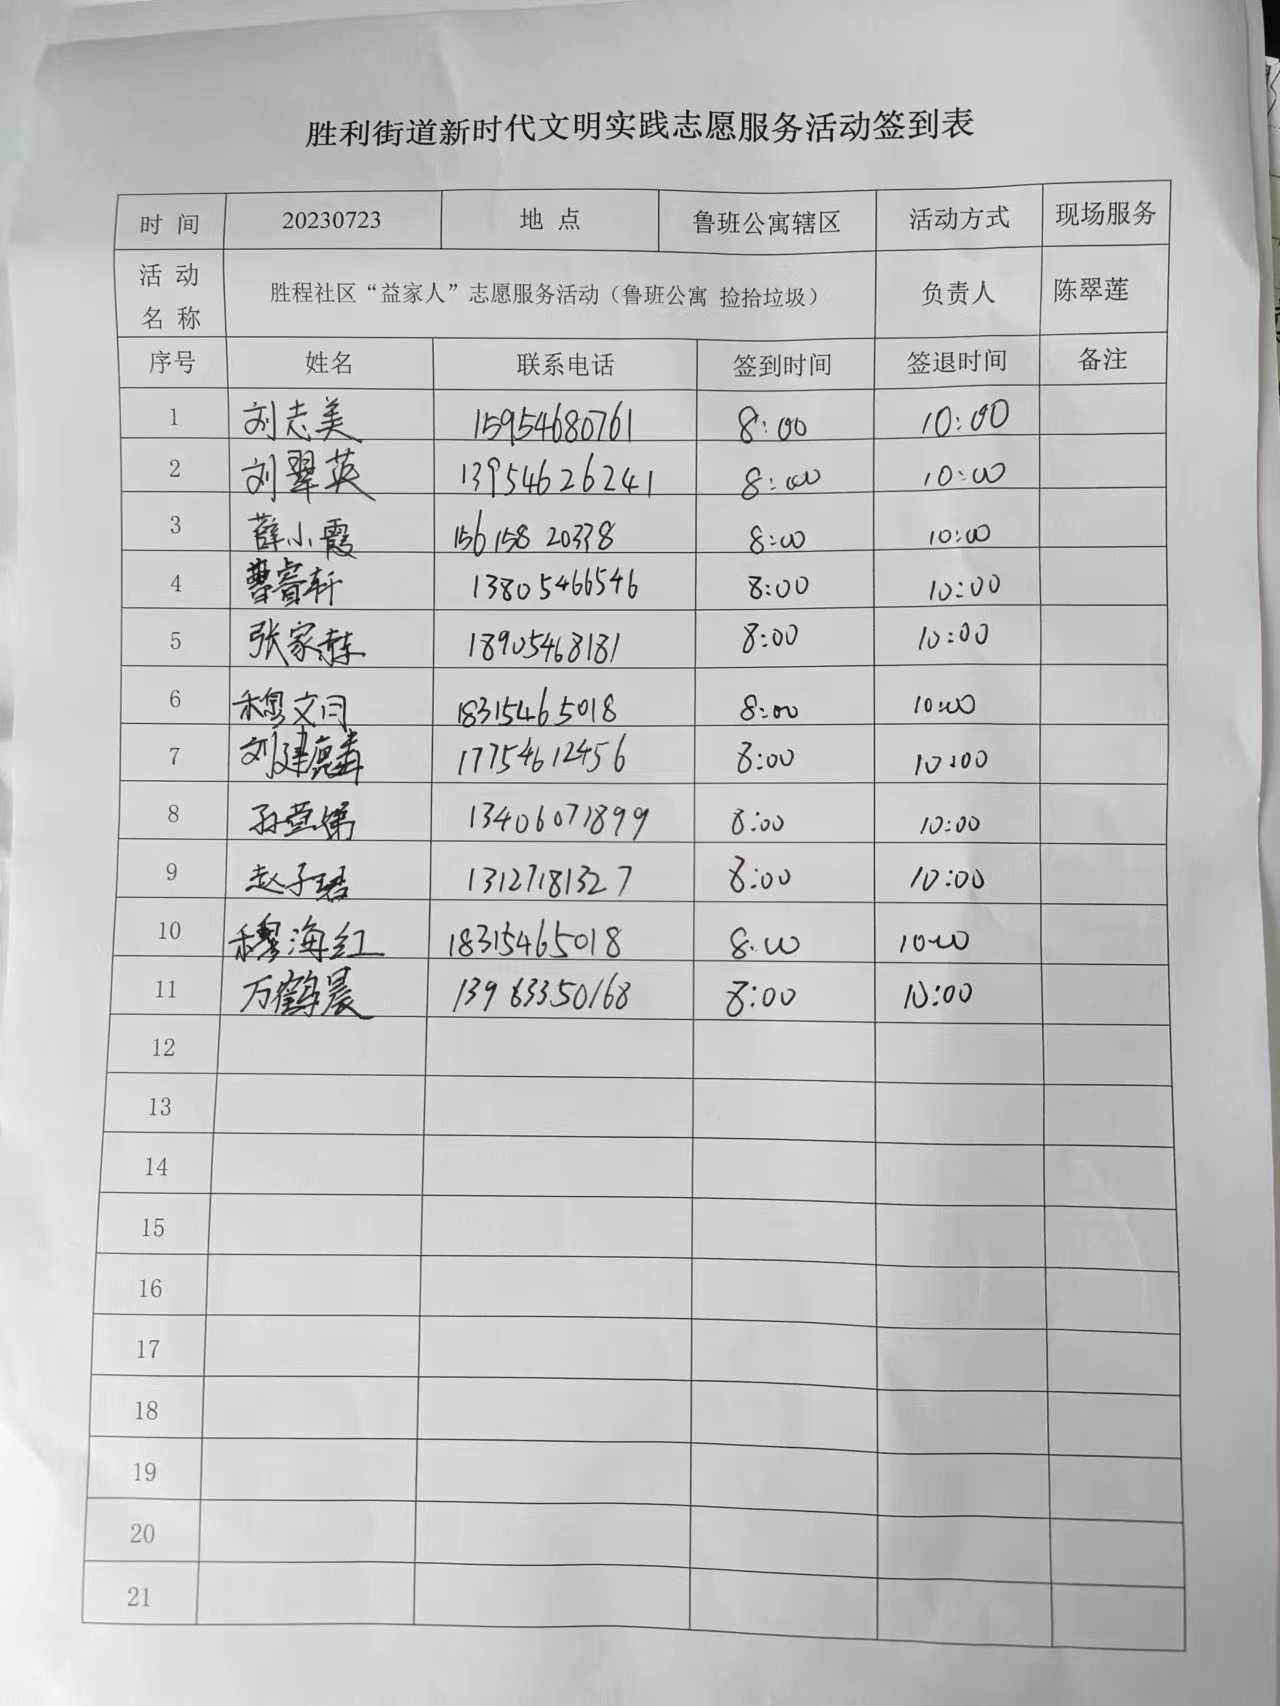 胜利街道新时代文明实践志愿服务活动签到表
时 间 20230723 地 点 鲁班公寓辖区 活动方式 现场服务
活 动 名 称 胜程社区“益家人”志愿服务活动（鲁班公寓 捡拾垃圾） 负责人 陈翠莲
序号 姓名 联系电话 签到时间 签退时间 备注
1 刘志美 15954680761 8:00 10:00
2 刘翠英 13954626241 8:00 10:00
3 薛小霞 156158 20338 8:00 10:00
4 曹睿轩 13805466546 8:00 10:00
5 张家赫 18905468181 8:00 10:00
6 穆文闫 18315465018 8:00 10:00
7 刘建德 17754612456 8:00 10:00
8 孙萱娣 13406071899 8:00 10:00
9 赵子珺 13127181327 8:00 10:00
10 穆海红 18315465018 8:00 10:00
11 万鹤晨 13963350168 8:00 10:00
12
13
14
15
16
17
18
19
20
21